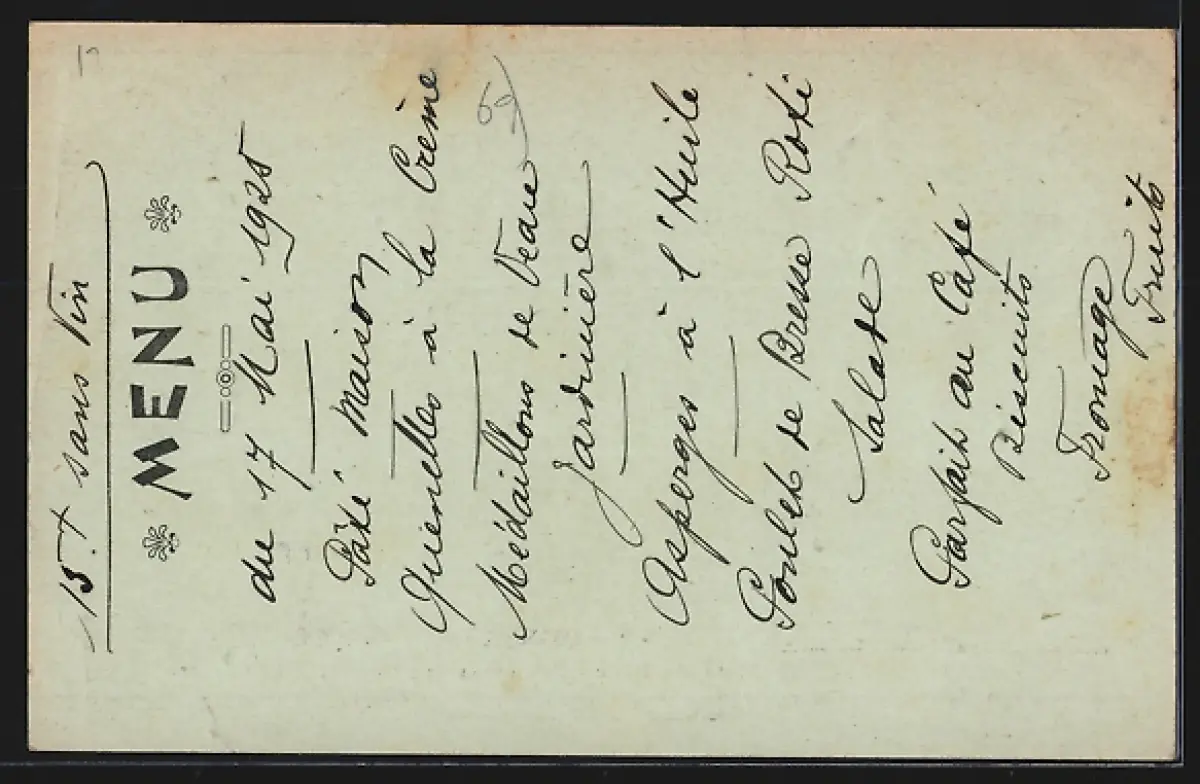 15.+ sans Vin
MENU
du 17 Mai 1925
Pâté Maison
Quenelles à la Crème
Médaillons de Veau
Jardinière
Asperges à l'Huile
Poulet de Bresse Roti
Salade
Parfait au Café
Biscuits
Fromage
Fruits